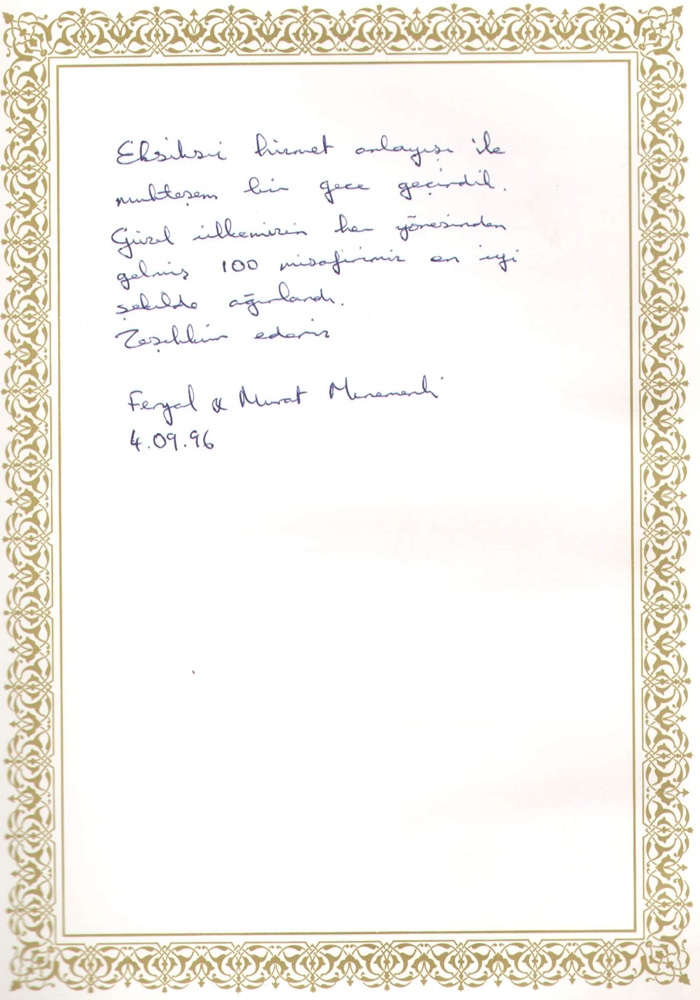 Eksiksiz hizmet anlayışı ile
muhteşem bir gece geçirdik.
Güzel ülkemizin her yöresinden
gelmiş 100 misafirimiz en iyi
şekilde ağırlandı.
Teşekkür ederiz
Feryal & Murat Menemenli
4.09.96